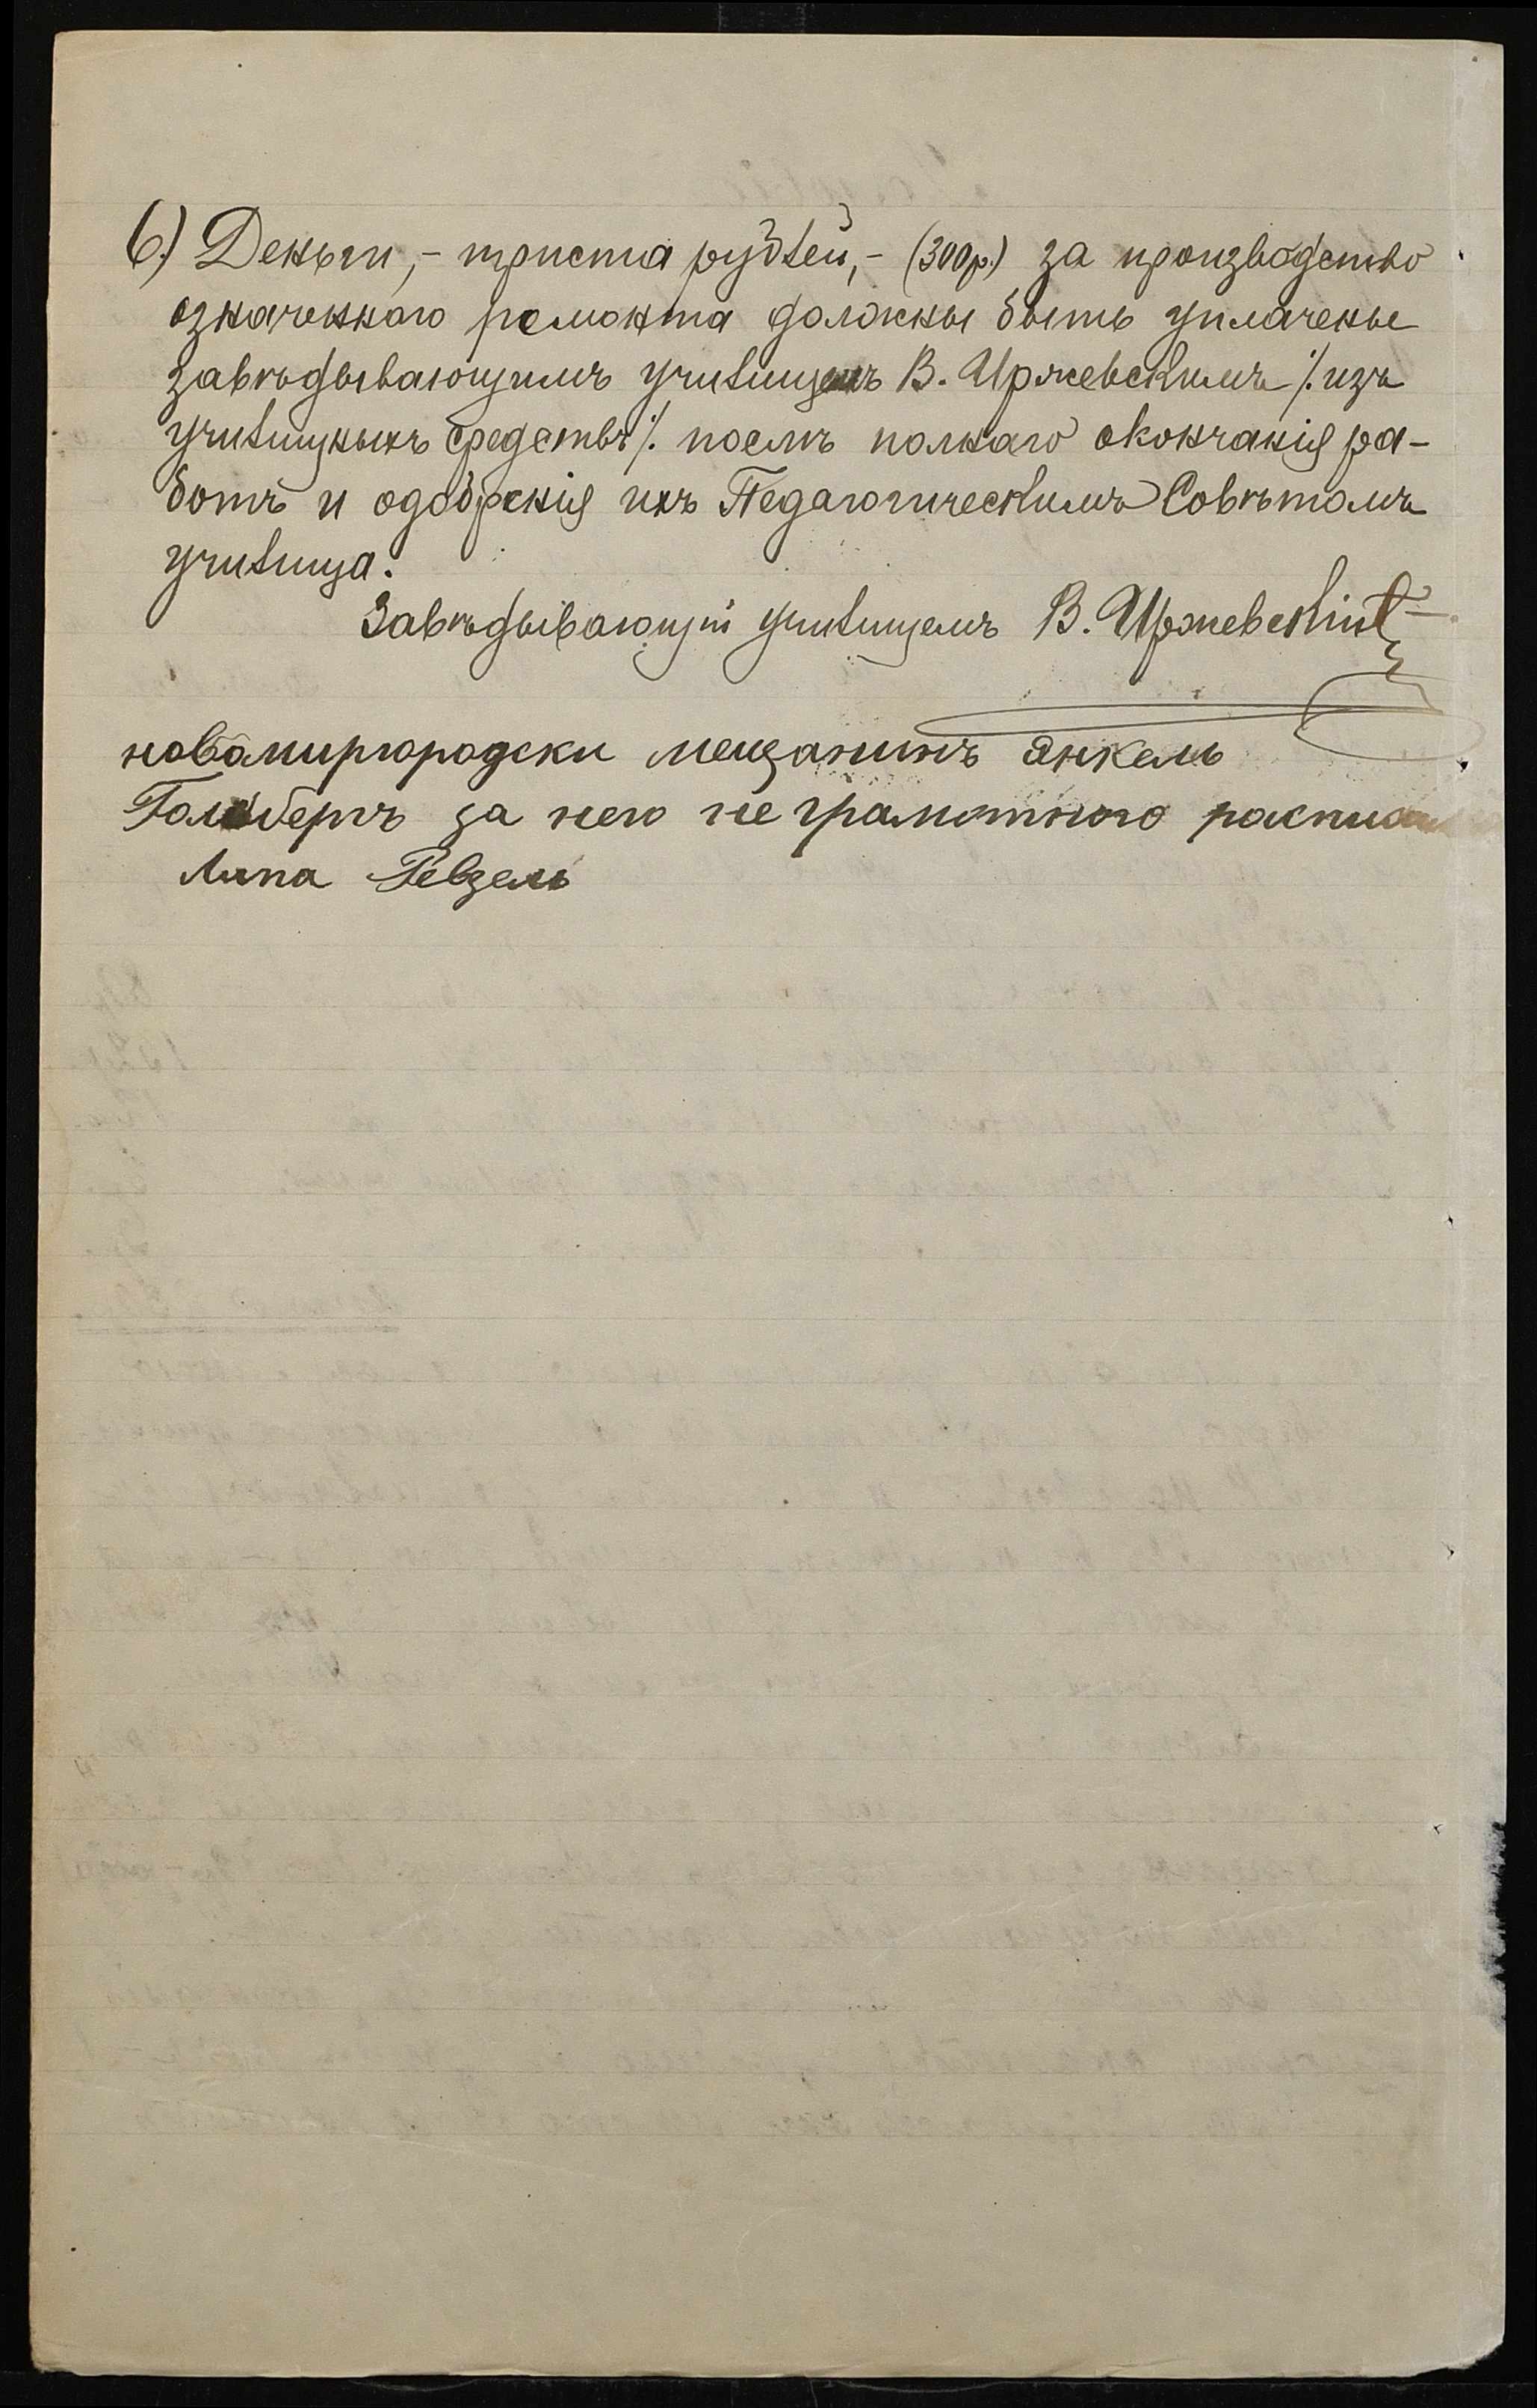 6.) Деньги,- триста рублей,- (300р.) за производство
означеннаго ремонта должны быть уплачены
завѣдывающимъ училищемъ В. Иржевскимъ ⁒ изъ
училищныхъ средствъ ⁒ послѣ полнаго окончанія ра-
ботъ и одобренія ихъ Педагогическимъ Совѣтомъ
училища.
Завѣдывающій училищемъ В. Иржевскій
новамиргородски мещанинъ Янкель
Голдбергъ за него не грамотного
Липа Ревзель